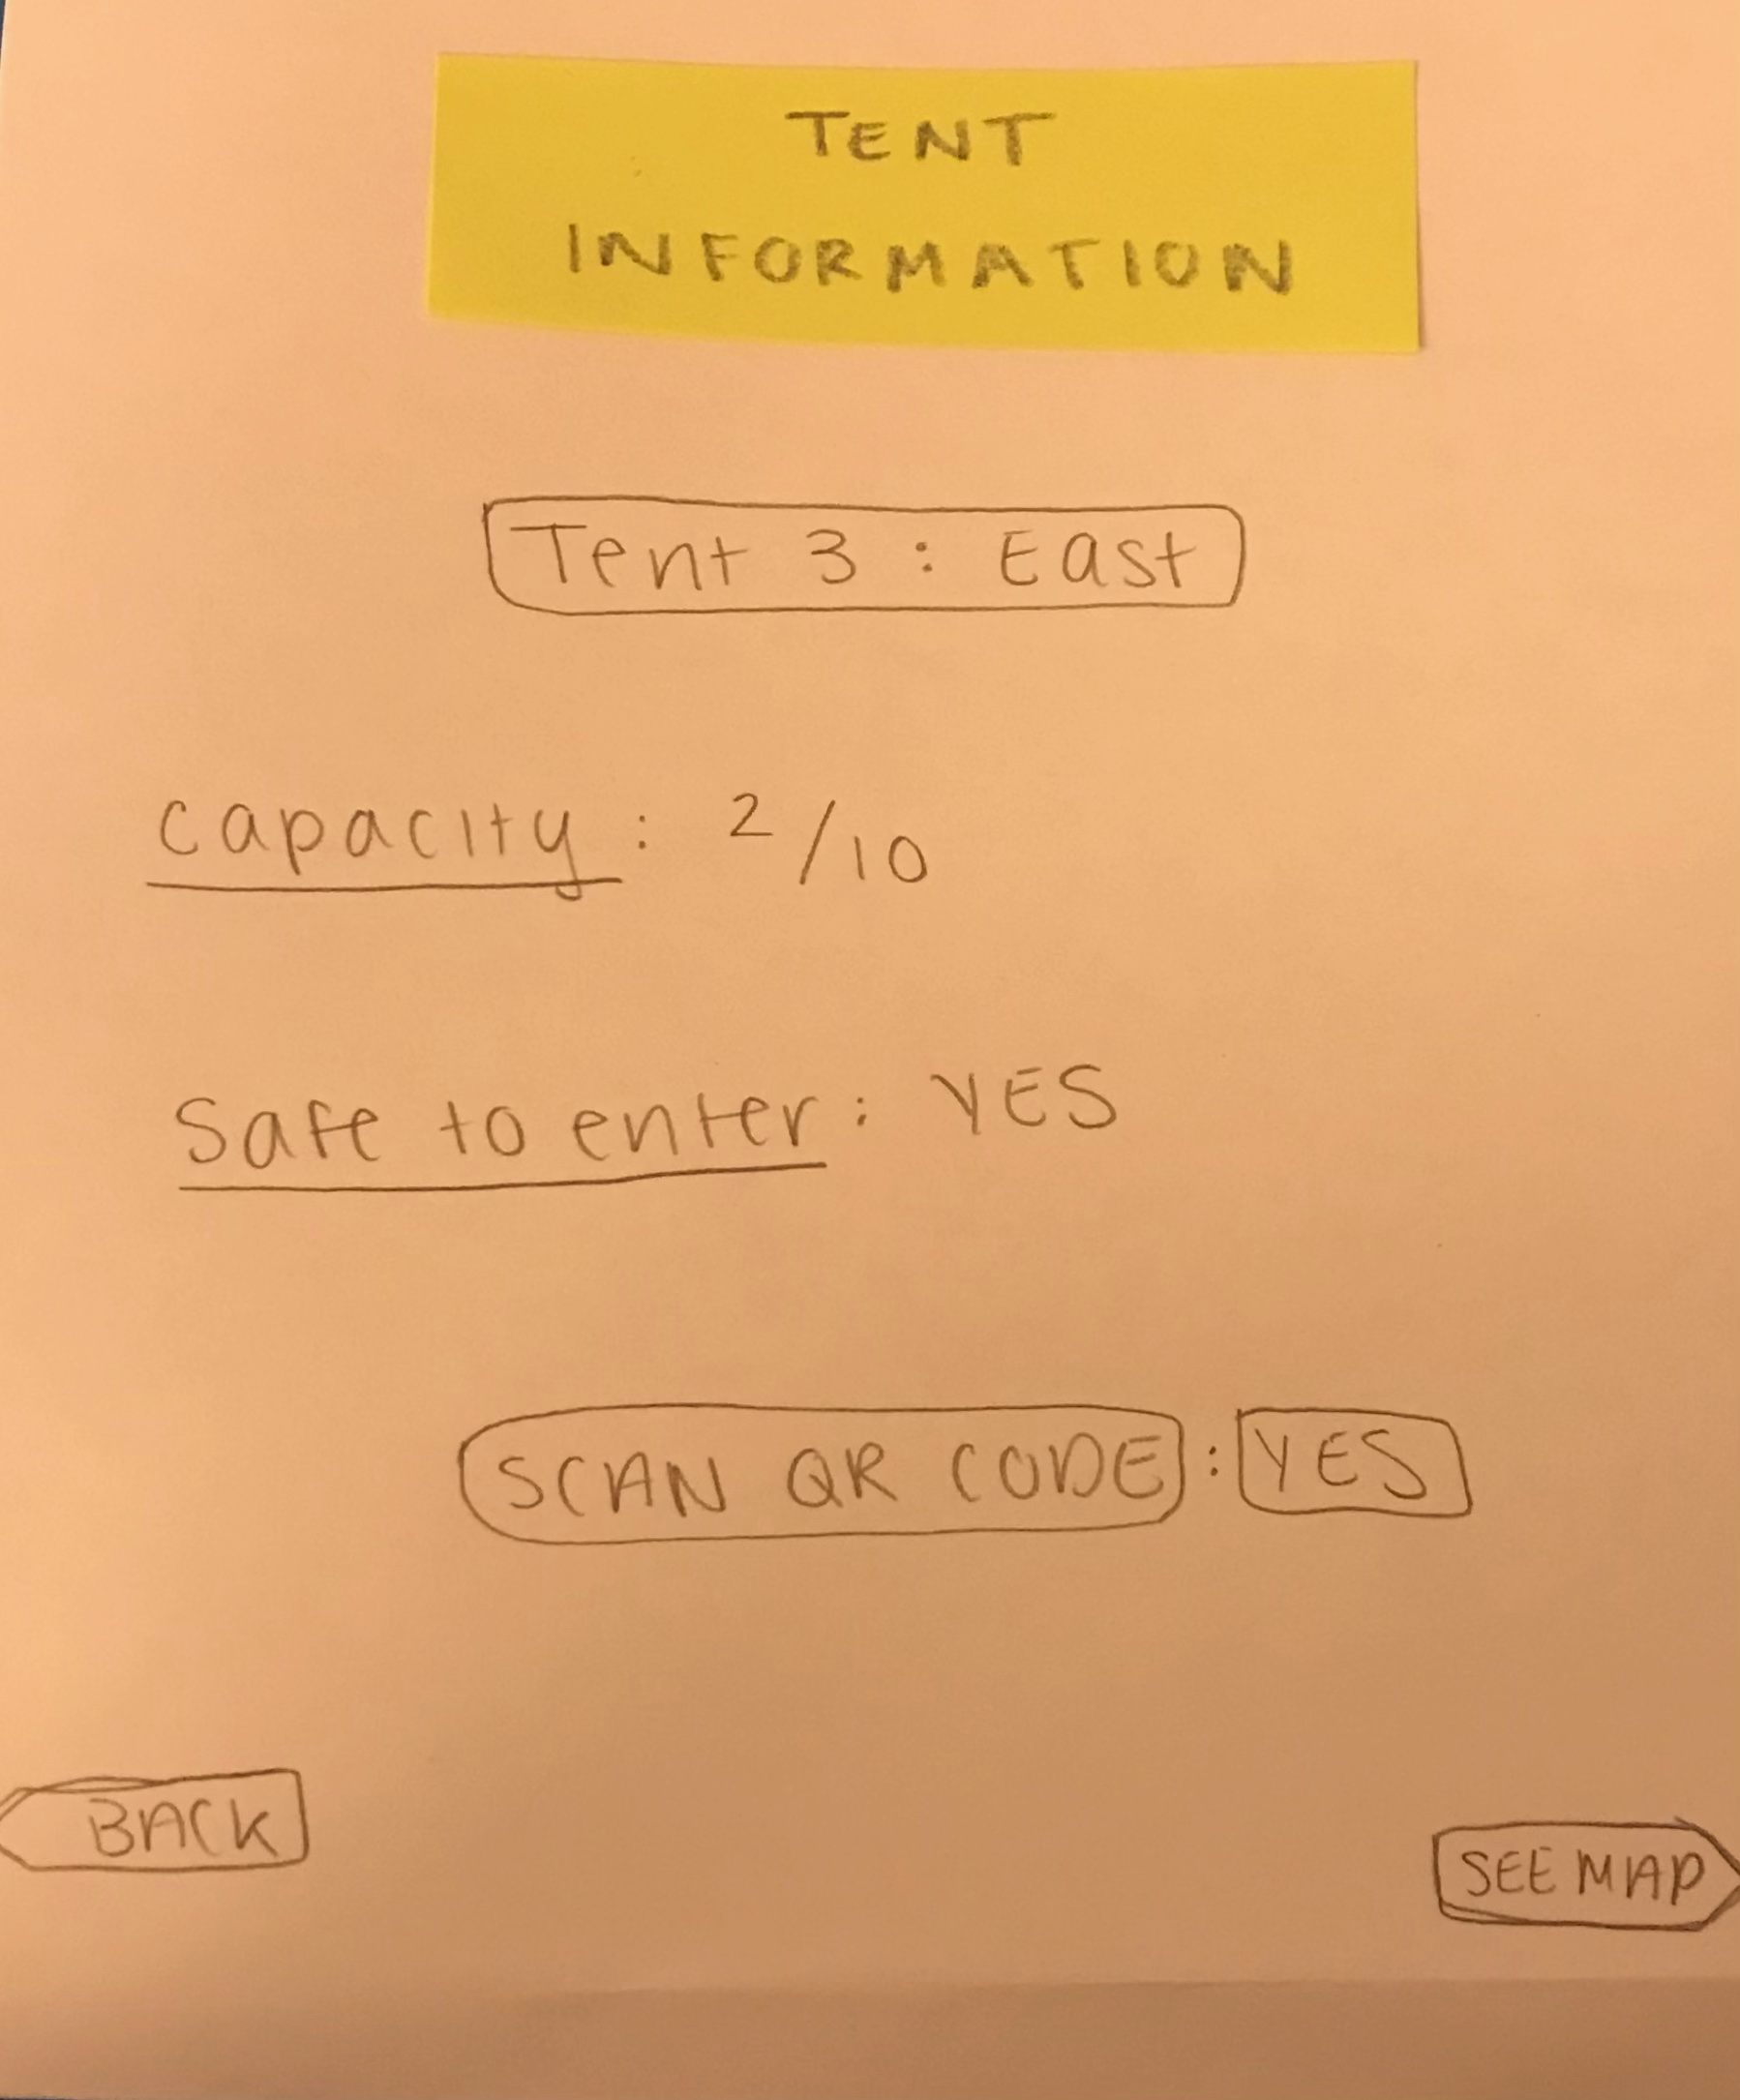 TENT
INFORMATION
Tent 3 : East
Capacity : 2/10
Safe to enter : YES
SCAN QR CODE : YES
BACK
SEE MAP